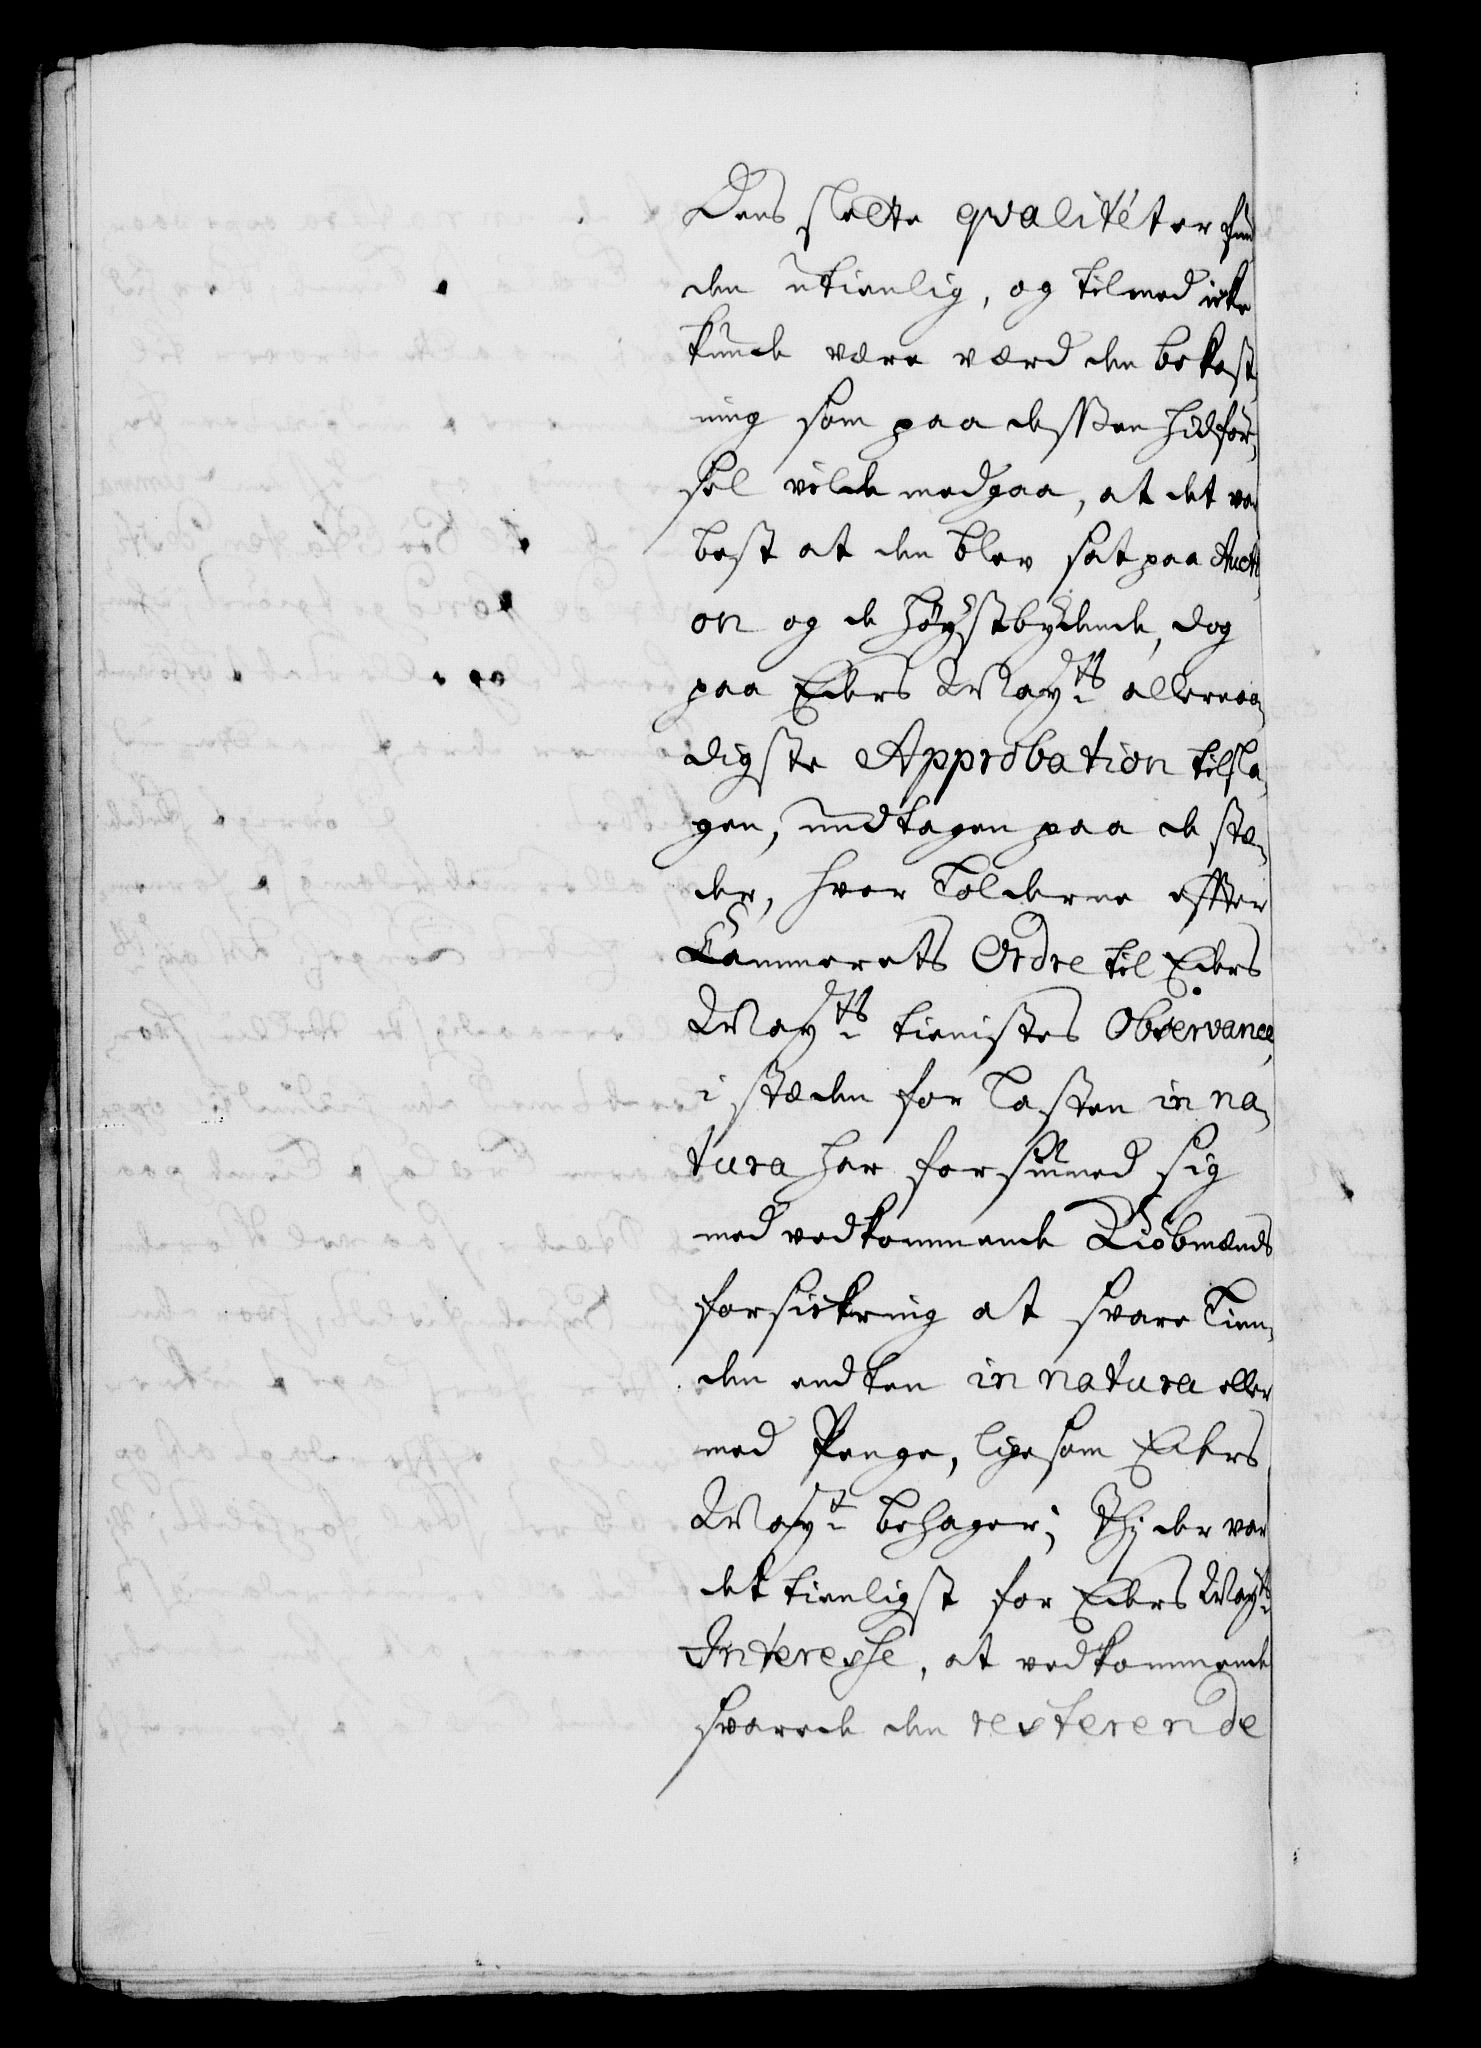 Dens slette qvalitéter fun
den utienlig, og tilmed icke
kunde være værd den bekost,
ning som paa desßen hidfør,
sel vilde medgaa, at det var
best at den blev sat paa Aucti
on og de høystbydende, dog
paa Eders Mayts allernaa,
digste Approbation tilsla,
gen, undtagen paa de stæ,
der, hvor Tolderne effter
Cammerets Ordre til Eders
Mayts tienistes Observance,
i stæden for Tasten in na,
tura har forsiuned sig
med vedkommende Kiøbmænds
forsickring at svare Tien,
den endten in natura eller
med Penge, ligesom Eders
Mayt behager; Thj der var
det tienligst for Eders Mayts
Interesse, at vedkommende
svarede den resterende